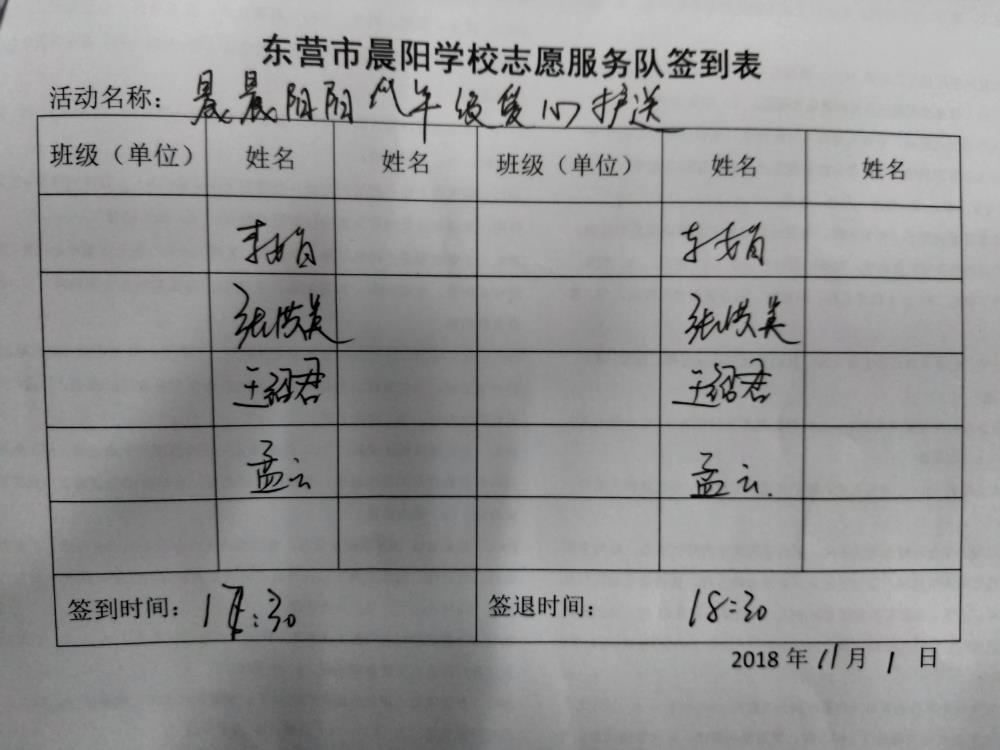 东营市晨阳学校志愿服务队签到表
活动名称：晨晨阳阳 年级爱心护送
班级（单位） 姓名 姓名 班级（单位） 姓名 姓名
李娟 李娟
张洪美 张洪美
王韶君 王韶君
孟云 孟云.
签到时间：17:30 签退时间：18:30
2018年11月1日